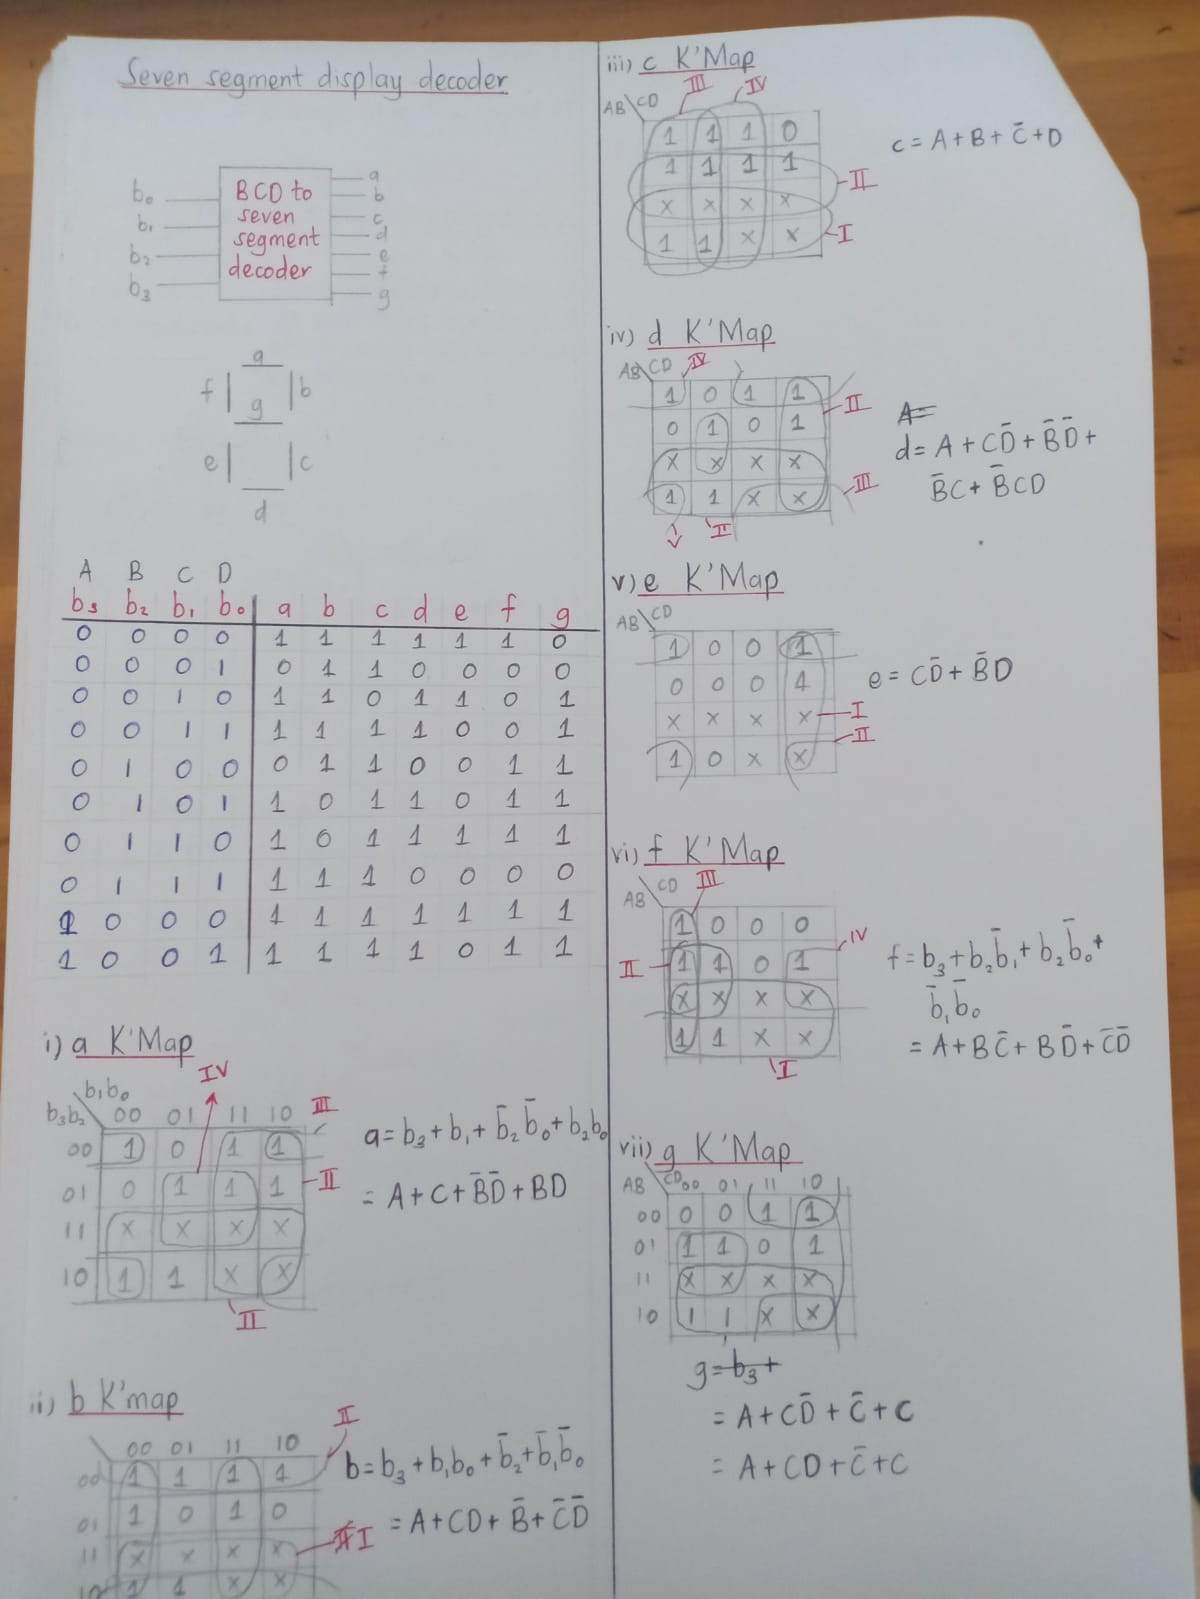 Seven segment display decoder
b₀
b₁
b₂
b₃
BCD to
seven
segment
decoder
a
b
c
d
e
f
g
a
f b
g
e c
d
A B C D
b₃ b₂ b₁ b₀ a b c d e f g
0 0 0 0 1 1 1 1 1 1 0
0 0 0 1 0 1 1 0 0 0 0
0 0 1 0 1 1 0 1 1 0 1
0 0 1 1 1 1 1 1 0 0 1
0 1 0 0 0 1 1 0 0 1 1
0 1 0 1 1 0 1 1 0 1 1
0 1 1 0 1 0 1 1 1 1 1
0 1 1 1 1 1 1 0 0 0 0
1 0 0 0 1 1 1 1 1 1 1
1 0 0 1 1 1 1 1 0 1 1
i) a K'Map
IV
b₁b₀
b₃b₂ 00 01 11 10 III
00 1 0 1 1
01 0 1 1 1 II
11 x x x x
10 1 1 x x
II
a = b₃ + b₁ + b̄₂ b̄₀ + b₂b₀
= A + C + B̄D̄ + BD
ii) b K'map
II
00 01 11 10
00 1 1 1 1
01 1 0 1 0
11 x x x x I
10 1 1 x x
b = b₃ + b₁b₀ + b̄₂ + b̄₁b̄₀
= A + CD + B̄ + C̄D̄
iii) c K'Map
III IV
AB\CD
1 1 1 0
1 1 1 1 II
x x x x
1 1 x x I
c = A + B + C̄ + D
iv) d K'Map
AB\CD IV
1 0 1 1 II
0 1 0 1
x x x x
1 1 x x III
II
A =
d = A + CD̄ + B̄D̄ +
B̄C + B̄CD
v) e K'Map
AB\CD
1 0 0 1
0 0 0 1
x x x x I
II
1 0 x x
e = CD̄ + B̄D
vi) f K'Map
AB\CD III
1 0 0 0 IV
II 1 1 0 1
x x x x
1 1 x x
I
f = b₃ + b₂b̄₁ + b₂b̄₀ +
b̄₁b̄₀
= A + BC̄ + BD̄ + C̄D̄
vii) g K'Map
AB\CD 00 01 11 10
00 0 0 1 1
01 1 1 0 1
11 x x x x
10 1 1 x x
g = b₃ +
= A + CD̄ + C̄ + C
= A + CD + C̄ + C